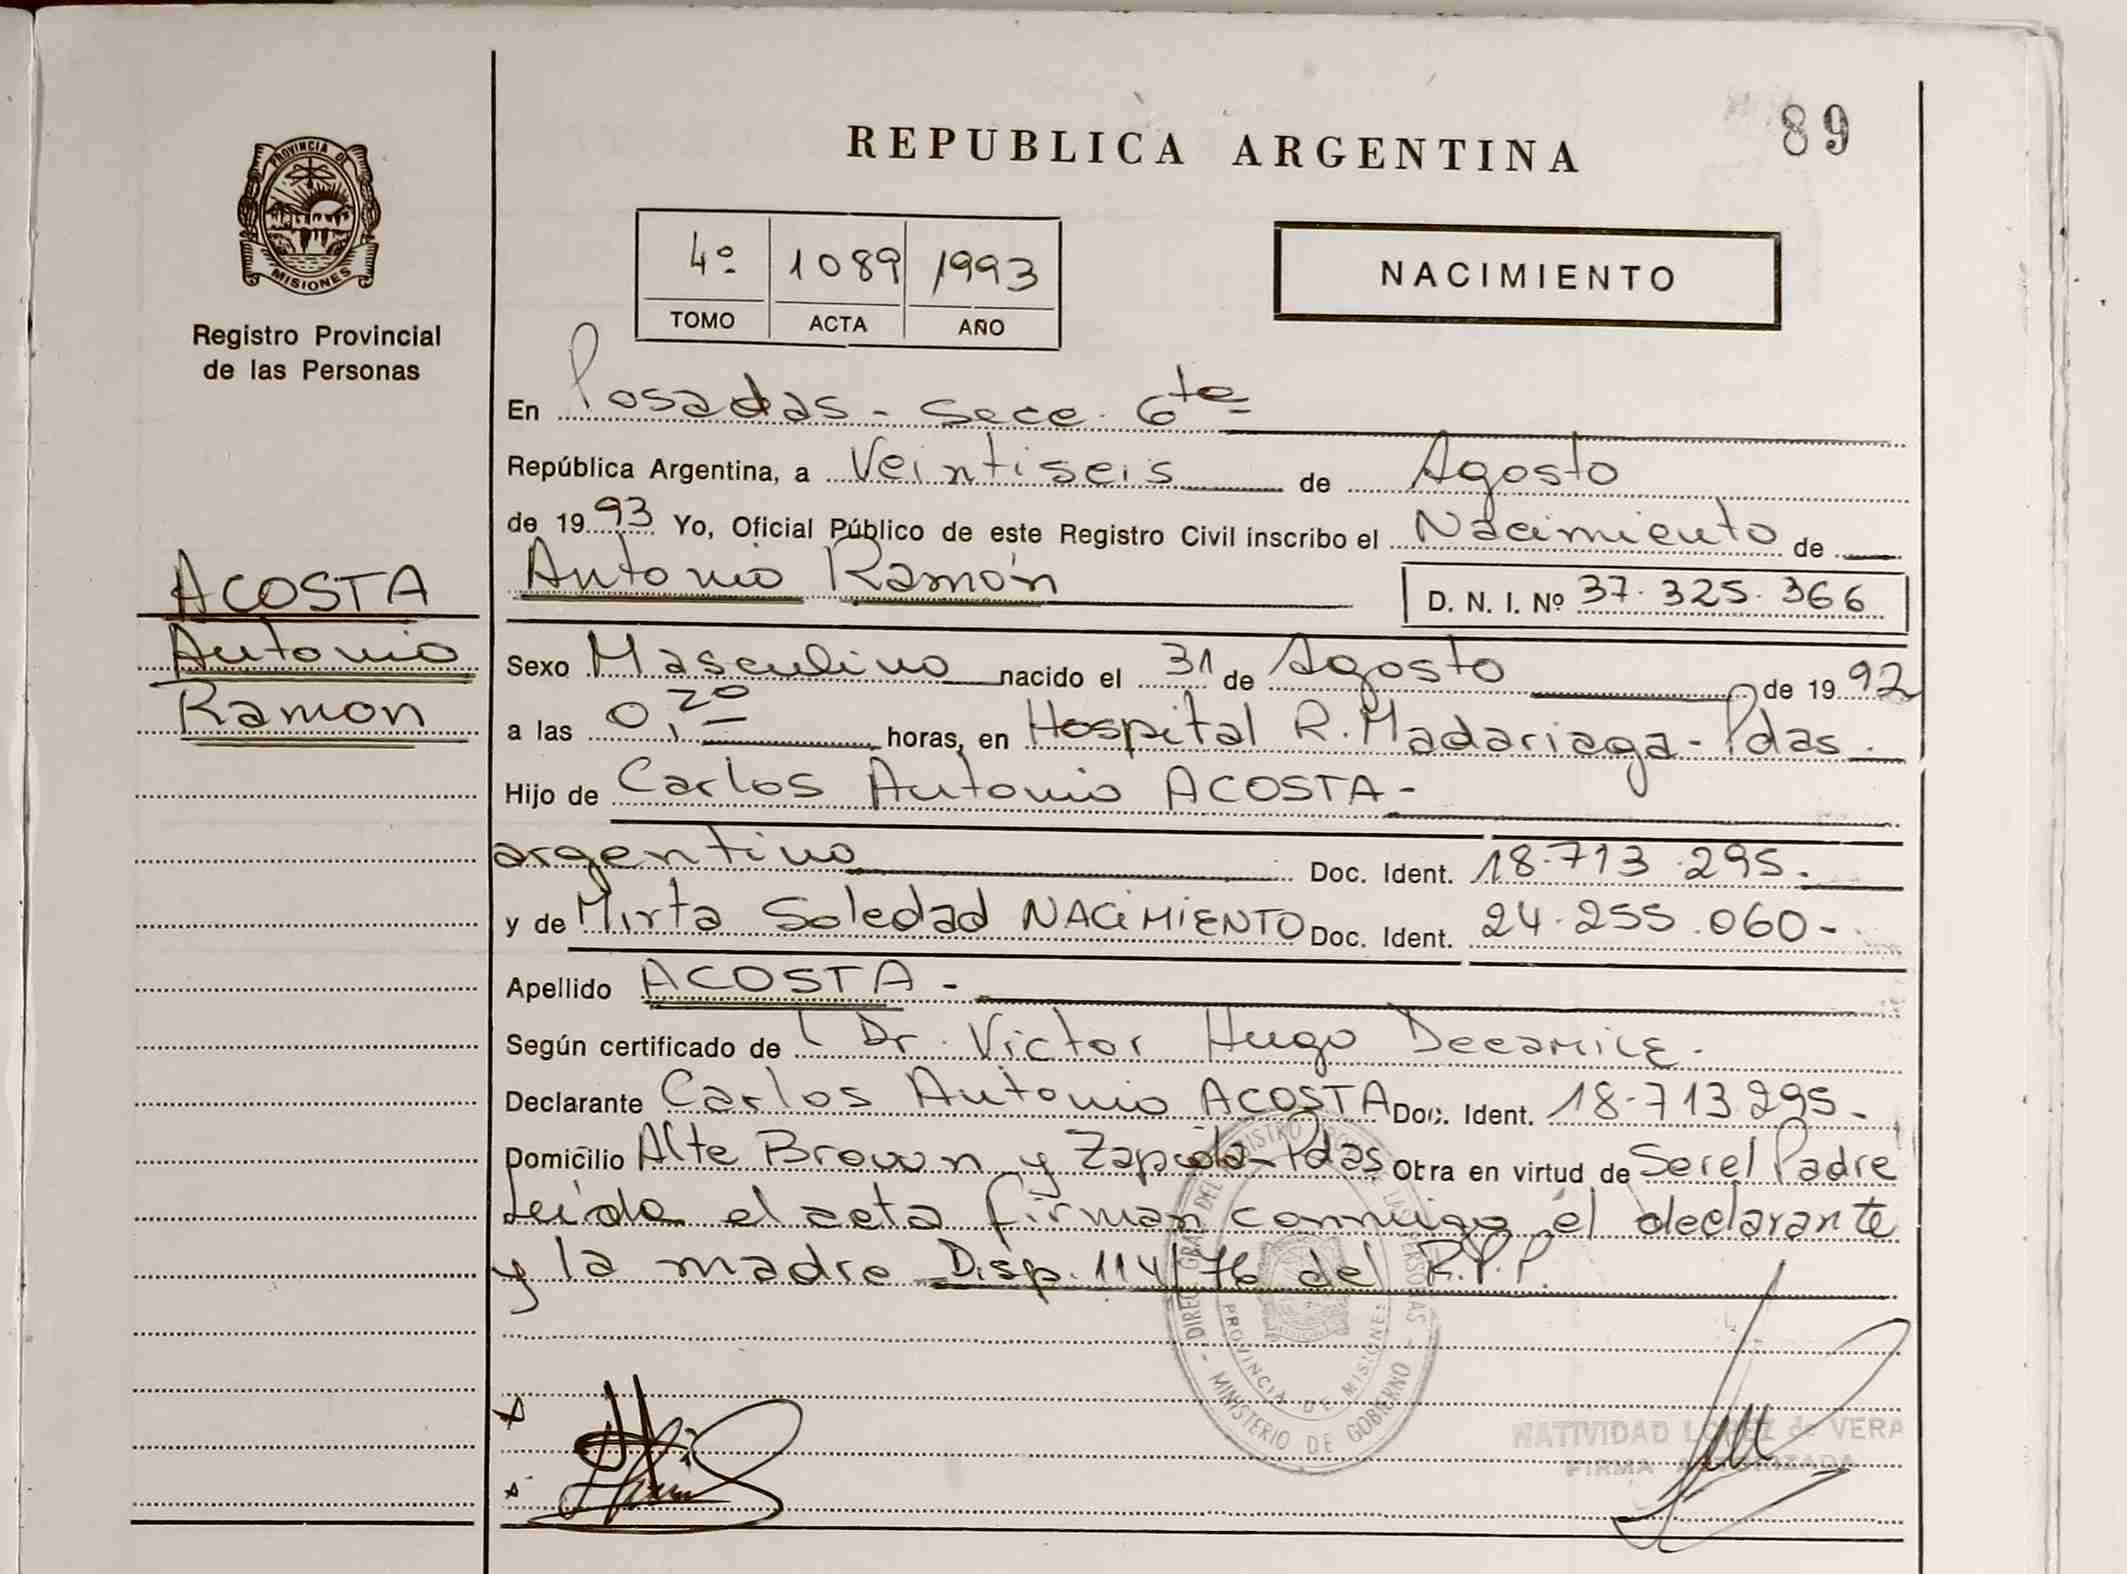 89
REPUBLICA ARGENTINA
PROVINCIA DE
MISIONES
Registro Provincial
de las Personas
4º 1089 1993
TOMO ACTA AÑO
NACIMIENTO
En Posadas - Secc. 6ta
República Argentina, a Veintiseis de Agosto
de 1993 Yo, Oficial Público de este Registro Civil inscribo el Nacimiento de
Antonio Ramón D. N. I. Nº 37.325.366
ACOSTA
Antonio
Ramon
Sexo Masculino nacido el 31 de Agosto de 1992
a las 0,20 horas, en Hospital R. Madariaga - Pdas.
Hijo de Carlos Antonio ACOSTA -
argentino Doc. Ident. 18.713.295.
y de Mirta Soledad NACIMIENTO Doc. Ident. 24.255.060-
Apellido ACOSTA -
Según certificado de Dr. Victor Hugo
Declarante Carlos Antonio ACOSTA Doc. Ident. 18.713.295-
Domicilio Alte Brown y Zapiola - Pdas Obra en virtud de Ser el Padre
Leída el acta firman conmigo el declarante
y la madre Disp. 114/76 del R.P.P.
PROVINCIA DE MISIONES
MINISTERIO DE GOBIERNO
NATIVIDAD LOPEZ de VERA
FIRMA AUTORIZADA